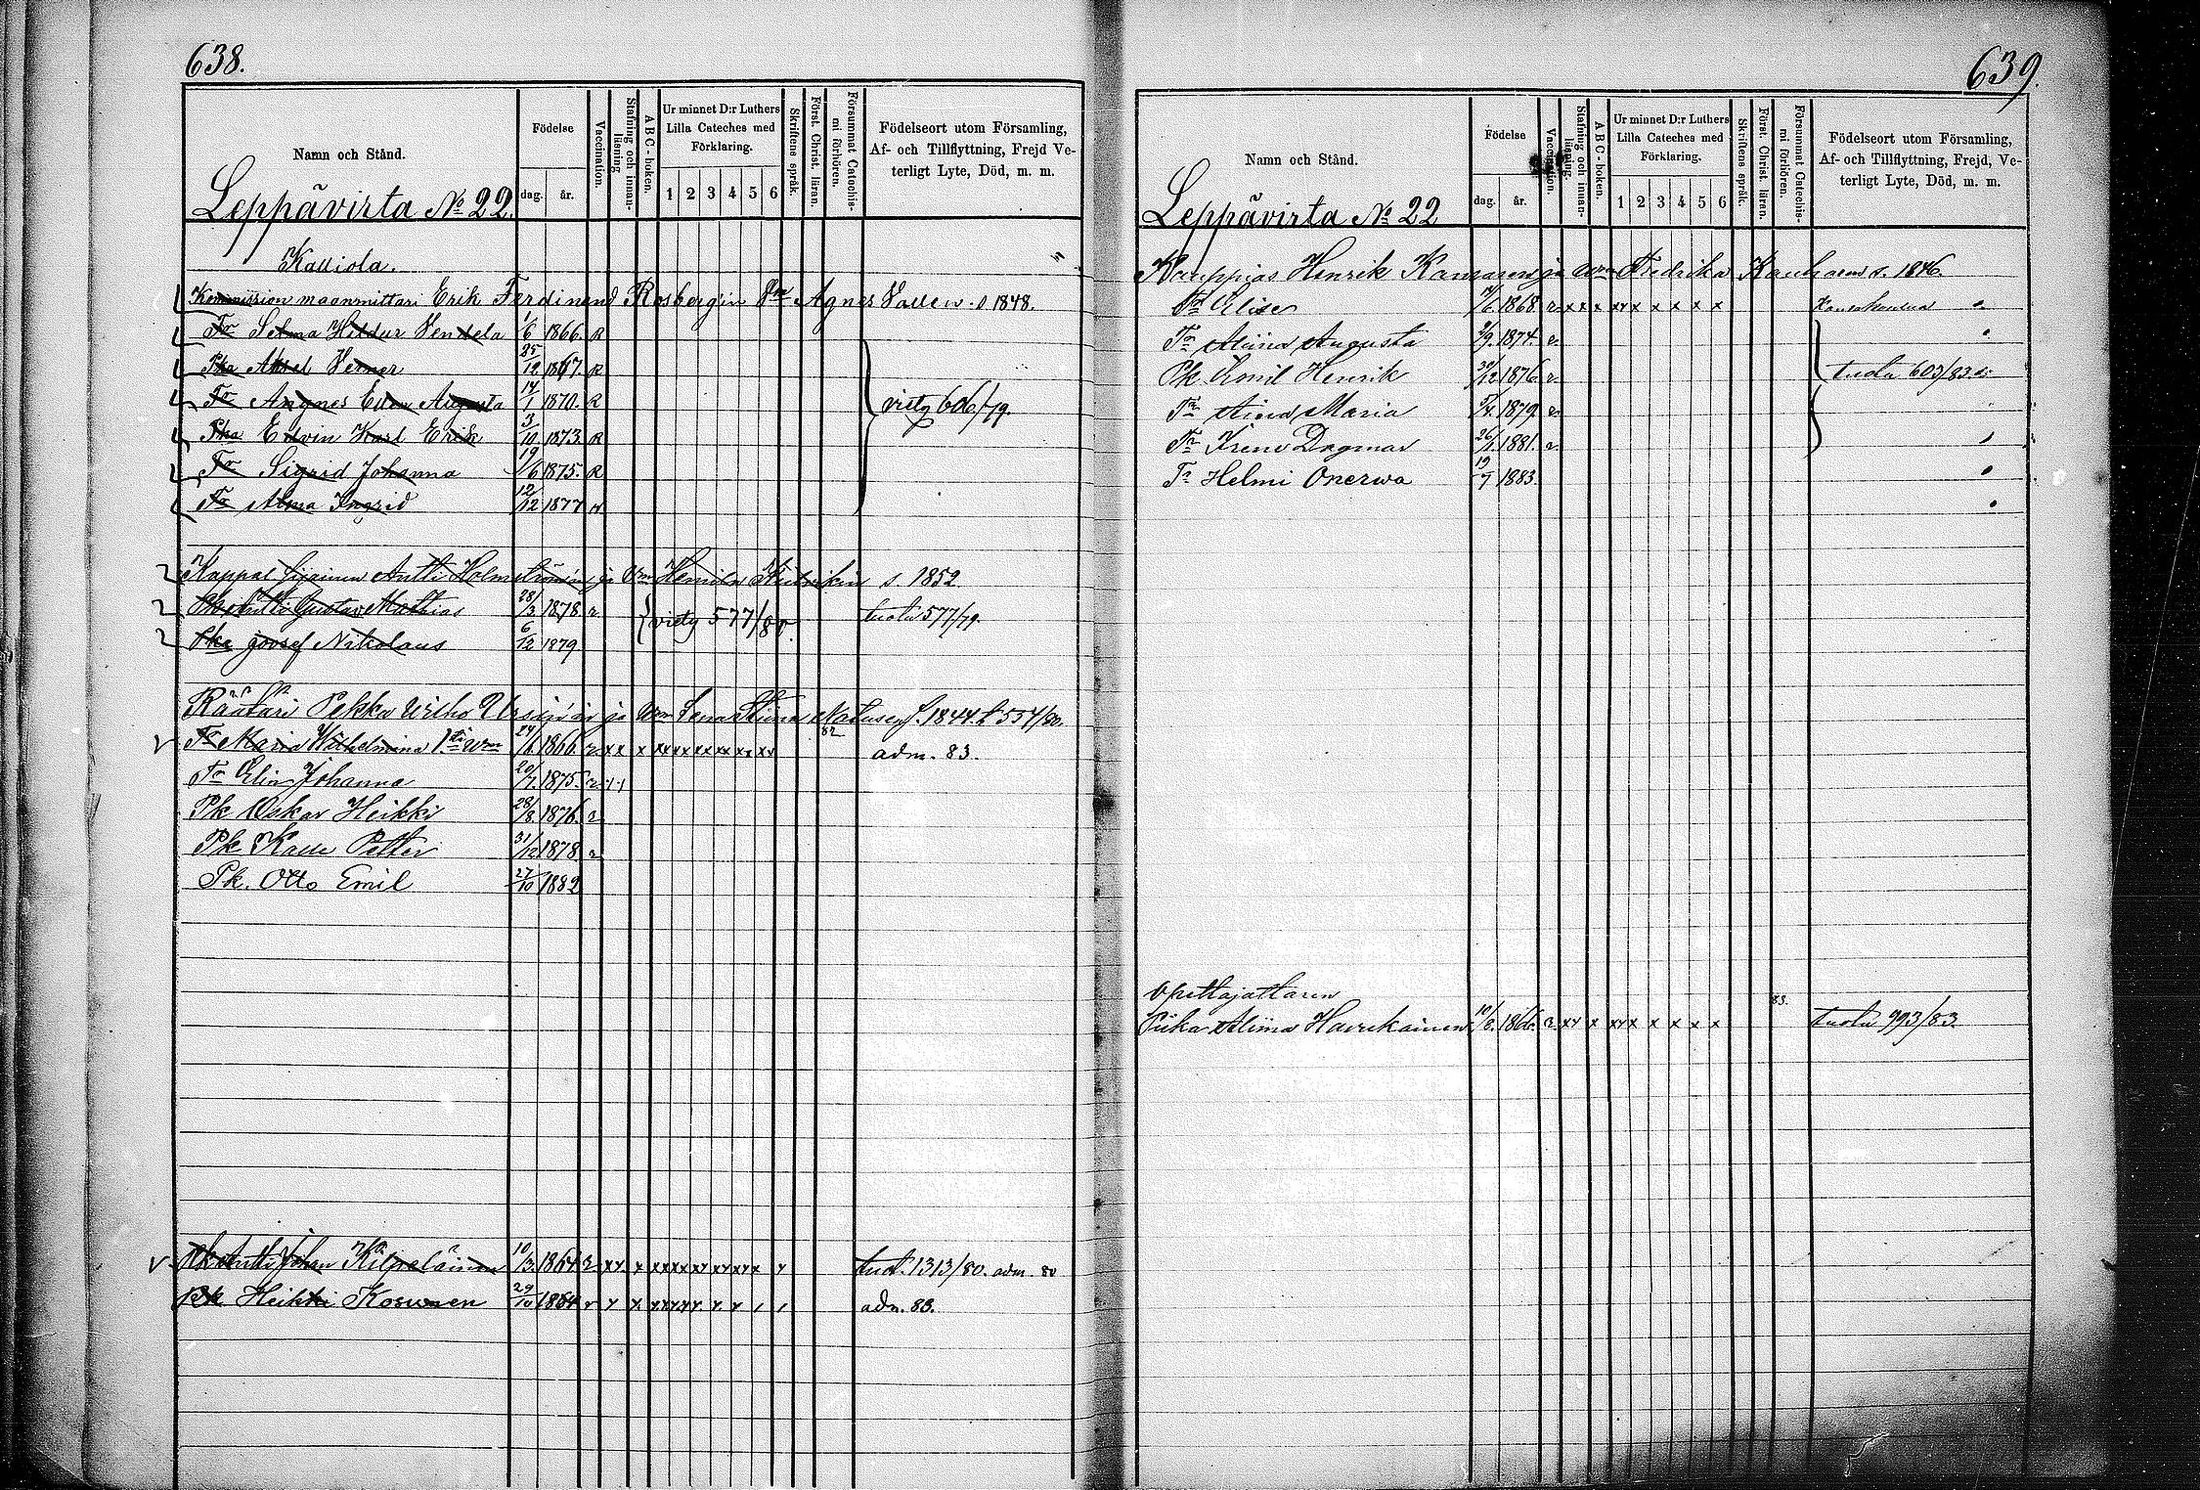 638.
Namn och Stånd.
Födelse
dag.
år.
Vaccination.
Stafning och innan-läsning
ABC-boken.
Ur minnet D:r Luthers Lilla Cateches med Förklaring.
1 2 3 4 5 6
Skriftens språk.
Först. Christ. läran.
Försummat Catechis-mi förhören.
Födelseort utom Församling, Af- och Tillflyttning, Frejd Ve-terligt Lyte, Död, m. m.
Leppävirta № 22.
Kalliola.
Kommission maanmittari Erik Ferdinand Rosbergin Agnes s 1848.
Tr Selma Hildur Vendela 1/6 1866. R
Pka Aksel Verner 25/12 1867. R
Tr Angnes Ellen Augusta 14/1 1870. R
viety 606/79.
Pka Edvin Karl Erik 3/10 1873. R
Tr Sigrid Johanna 19/6 1875. R
Tr Alma Ingrid 12/12 1877
Kappal. Antti Holmströmin ja Wm s. 1852
Pk Antti Gustav Mathias 28/3 1878 r viety 577/80. tuolu 577/79.
Pka Joosef Nikolaus 6/12 1879
Räätäri Pekka Wilho ja Wm Lena Stiina s. 1844 t 554/80.
Tr Maria Wilhelmina 1sti Wm 24/6 1866 r xx x xx xx xx xx xx xx 82 adm. 83.
Tr Elin Johanna 20/7 1875. r
Pk Oskar Heikki 28/8 1876. r
Pk Kalle Petter 31/12 1878. r
Pk. Otto Emil 27/10 1882
Pk Antti Johan Kilpeläinen 10/3 1864 tuol. 1313/80. adm. 80
Pk Heikki Kosunen 29/10 1864 adm. 83.
639.
Namn och Stånd.
Födelse
dag.
år.
Vaccination.
Stafning och innan-läsning.
ABC-boken.
Ur minnet D:r Luthers Lilla Cateches med Förklaring.
1 2 3 4 5 6
Skriftens språk.
Först. Christ. läran.
Försummat Catechis-mi förhören.
Födelseort utom Församling, Af- och Tillflyttning, Frejd, Ve-terligt Lyte, Död, m. m.
Leppävirta № 22
Kauppias Henrik Kansanen ja Wm Fredrika s. 1846.
Tr Elise 1868. r xx x xx x x x x x Kansakoulua
Tr Miina Augusta 1874.
Pk Emil Henrik 1876 tuolu 603/83
Tr Aina Maria 1879
Tr Irene Dagmar 26/1 1881.
Tr Helmi Onerva 19/7 1883.
Opettajattaren
Piika Miina Havukainen 10/2 1866. r xx x xx x x x x x 83. tuolu 993/83.